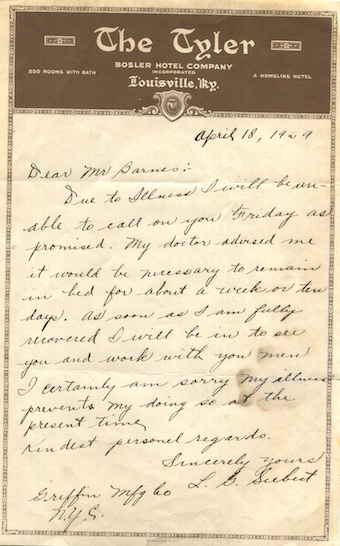 The Tyler
BOSLER HOTEL COMPANY
INCORPORATED
250 ROOMS WITH BATH
A HOMELIKE HOTEL
Louisville, Ky.
April 18, 1929
Dear Mr Barnes:
Due to Illness I will be un-
able to call on you Friday as
promised. My doctor advised me
it would be necessary to remain
in bed for about a week or ten
days. As soon as I am fully
recovered I will be in to see
you and work with you men
I certainly am sorry my illness
prevents my doing so at the
present time,
Kindest personel regards.
Sincerely yours
L. G. Siebert
Griffin Mfg Co
N.Y.C.